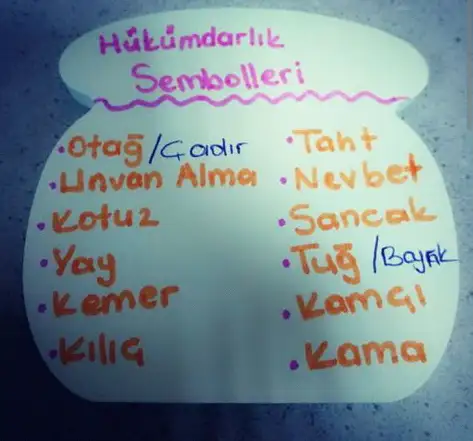 Hükümdarlık
Sembolleri
•Otağ/Çadır
•Unvan Alma
•Kotuz
•Yay
•Kemer
•Kılıç
•Taht
•Nevbet
•Sancak
•Tuğ/Bayrak
•Kamçı
•Kama